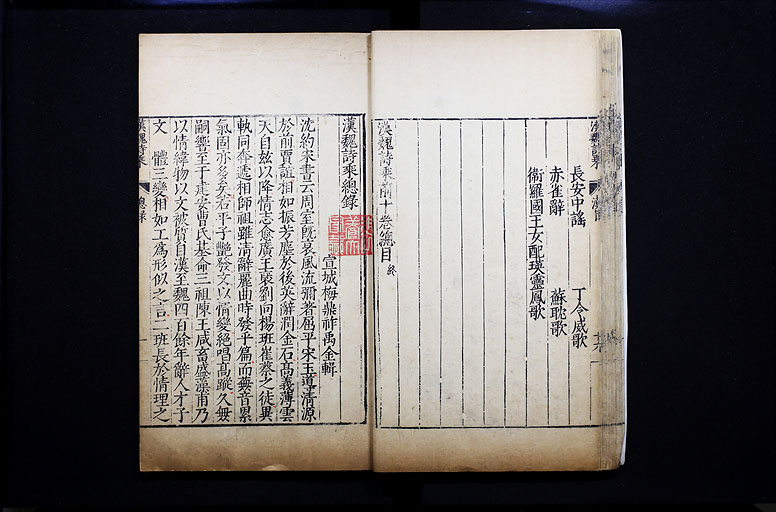 長安中謠 丁令威歌
赤雀辭 蘇耽歌
衛羅國王女配瑛靈鳳歌
漢魏詩乘前十卷總目 終
漢魏詩乘總錄
宣城梅鼎祚禹金輯
沈約宋書云周室旣衰風流彌著屈平宋玉導清源
於前賈誼相如振芳塵於後英辭潤金石高義薄雲
天自茲以降情志愈廣王褒劉向楊班崔蔡之徒異
軌同奔遞相師祖雖清辭麗曲時發乎篇而蕪音累
氣固亦多矣若平子艷發文以情變絕唱高蹤久無
嗣響至于建安曹氏基命三祖陳王咸畜盛藻甫乃
以情緯物以文被質自漢至魏四百餘年辭人才子
文 體三變相如工爲形似之言二班長於情理之
漢魏詩乘 總錄 一